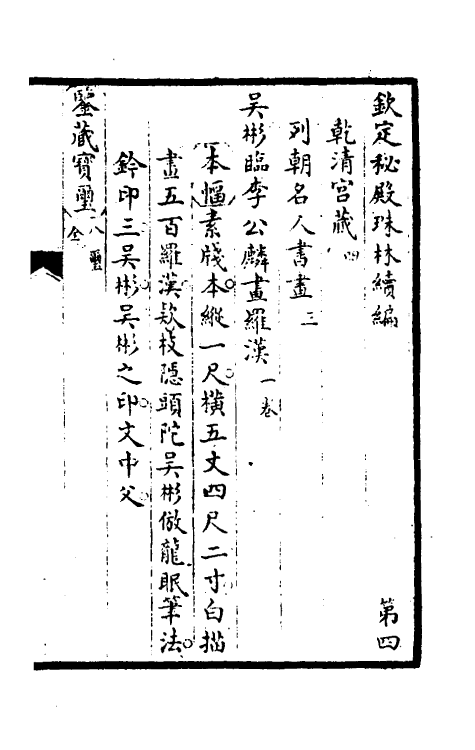 欽定秘殿珠林續編　第四
乾清宮藏四
列朝名人書畫三
吳彬臨李公麟畫羅漢一卷
本幅素牋本縱一尺橫五丈四尺二寸白描
畫五百羅漢款枝隱頭陀吳彬倣龍眠筆法
鈐印三吳彬吳彬之印文中父
鑒藏寶璽八璽全